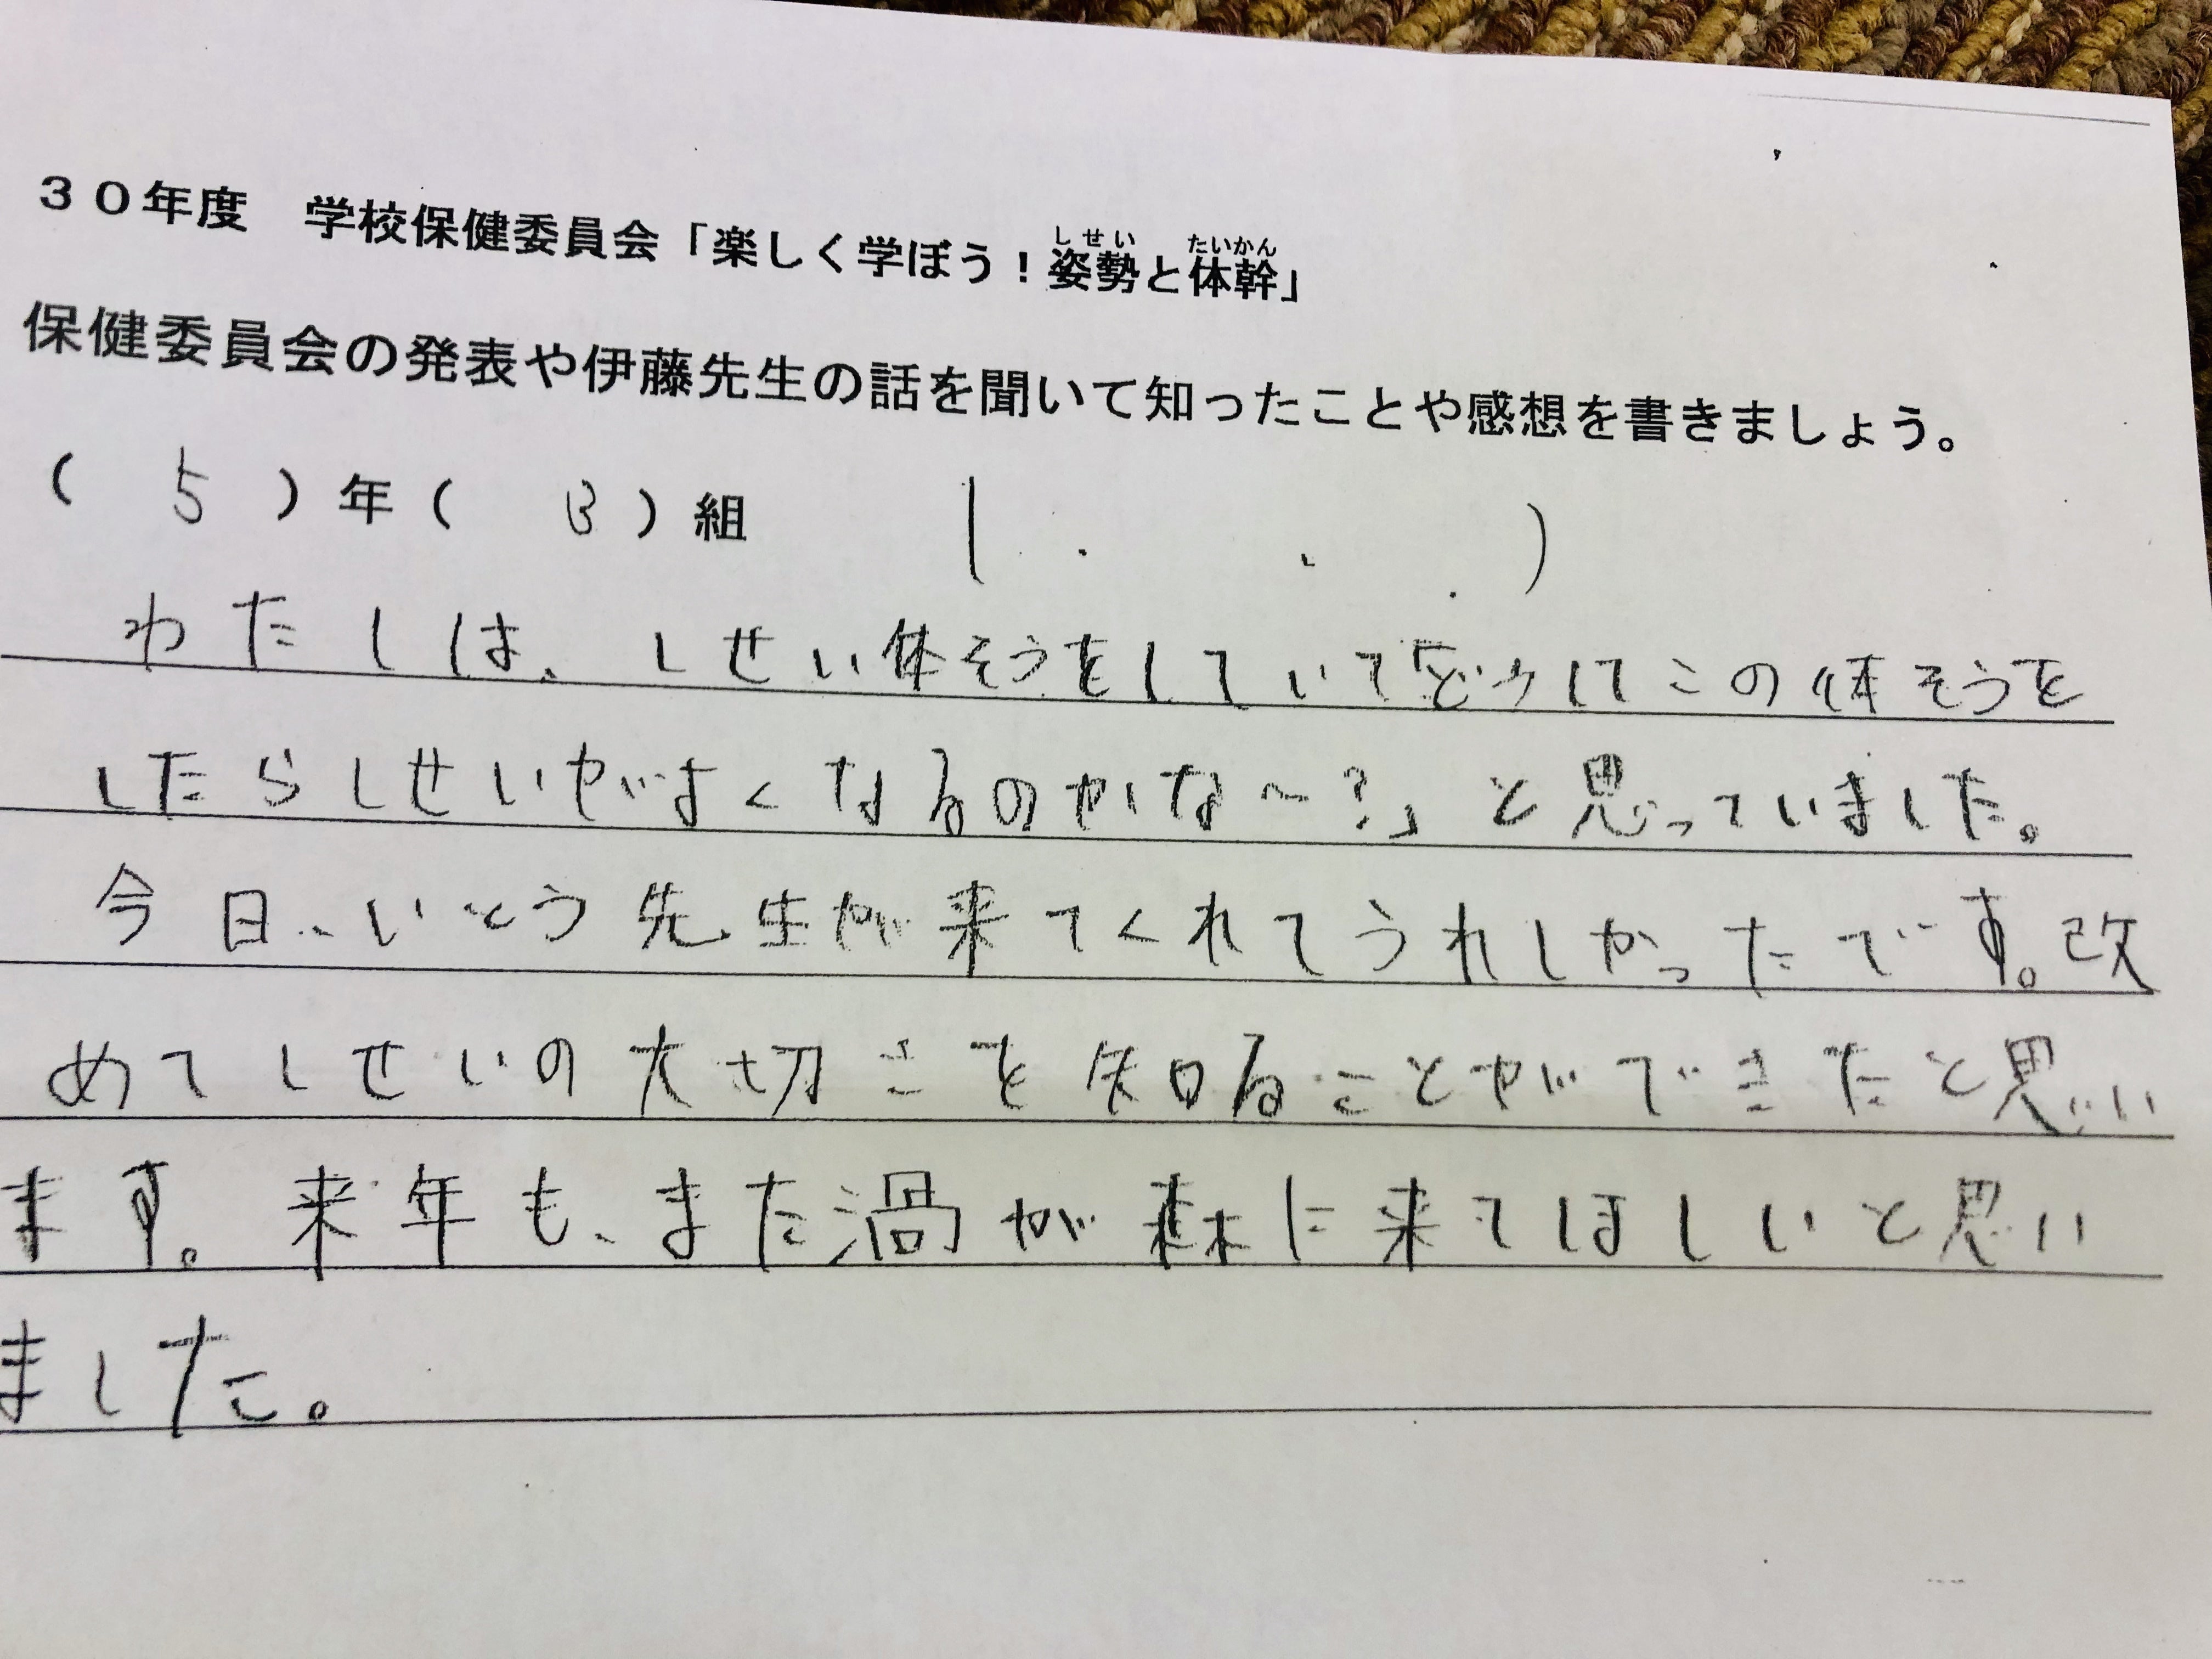 30年度　学校保健委員会「楽しく学ぼう！姿勢と体幹」
しせい　たいかん
保健委員会の発表や伊藤先生の話を聞いて知ったことや感想を書きましょう。
（ 5 ）年（ 3 ）組　（　　　）
わたしは、しせい体そうをしていて「どうしてこの体そうを
したらしせいがよくなるのかな〜？」と思っていました。
今日、いとう先生が来てくれてうれしかったです。改
めてしせいの大切さを知ることができたと思い
ます。来年も、また渦が森に来てほしいと思い
ました。